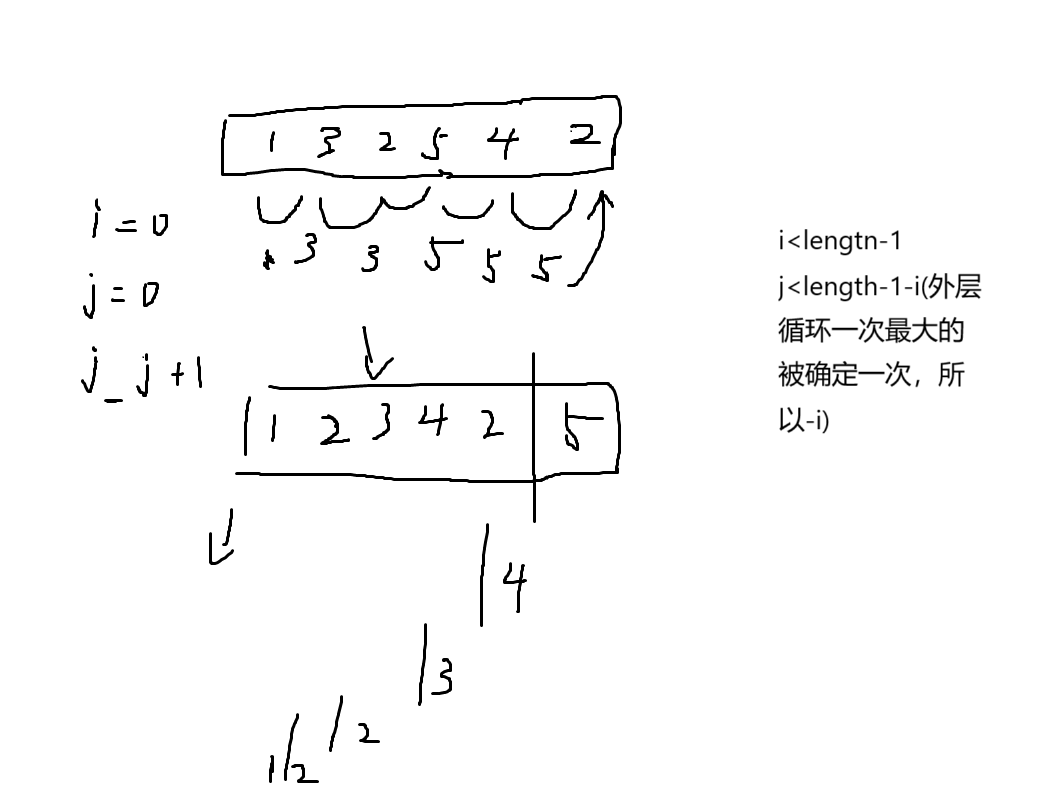 1 3 2 5 4 2
i = 0
3 3 5 5 5
j = 0
j _ j + 1
1 2 3 4 2 5
4
3
2
1 2
i<lengtn-1
j<length-1-i(外层
循环一次最大的
被确定一次，所
以-i)